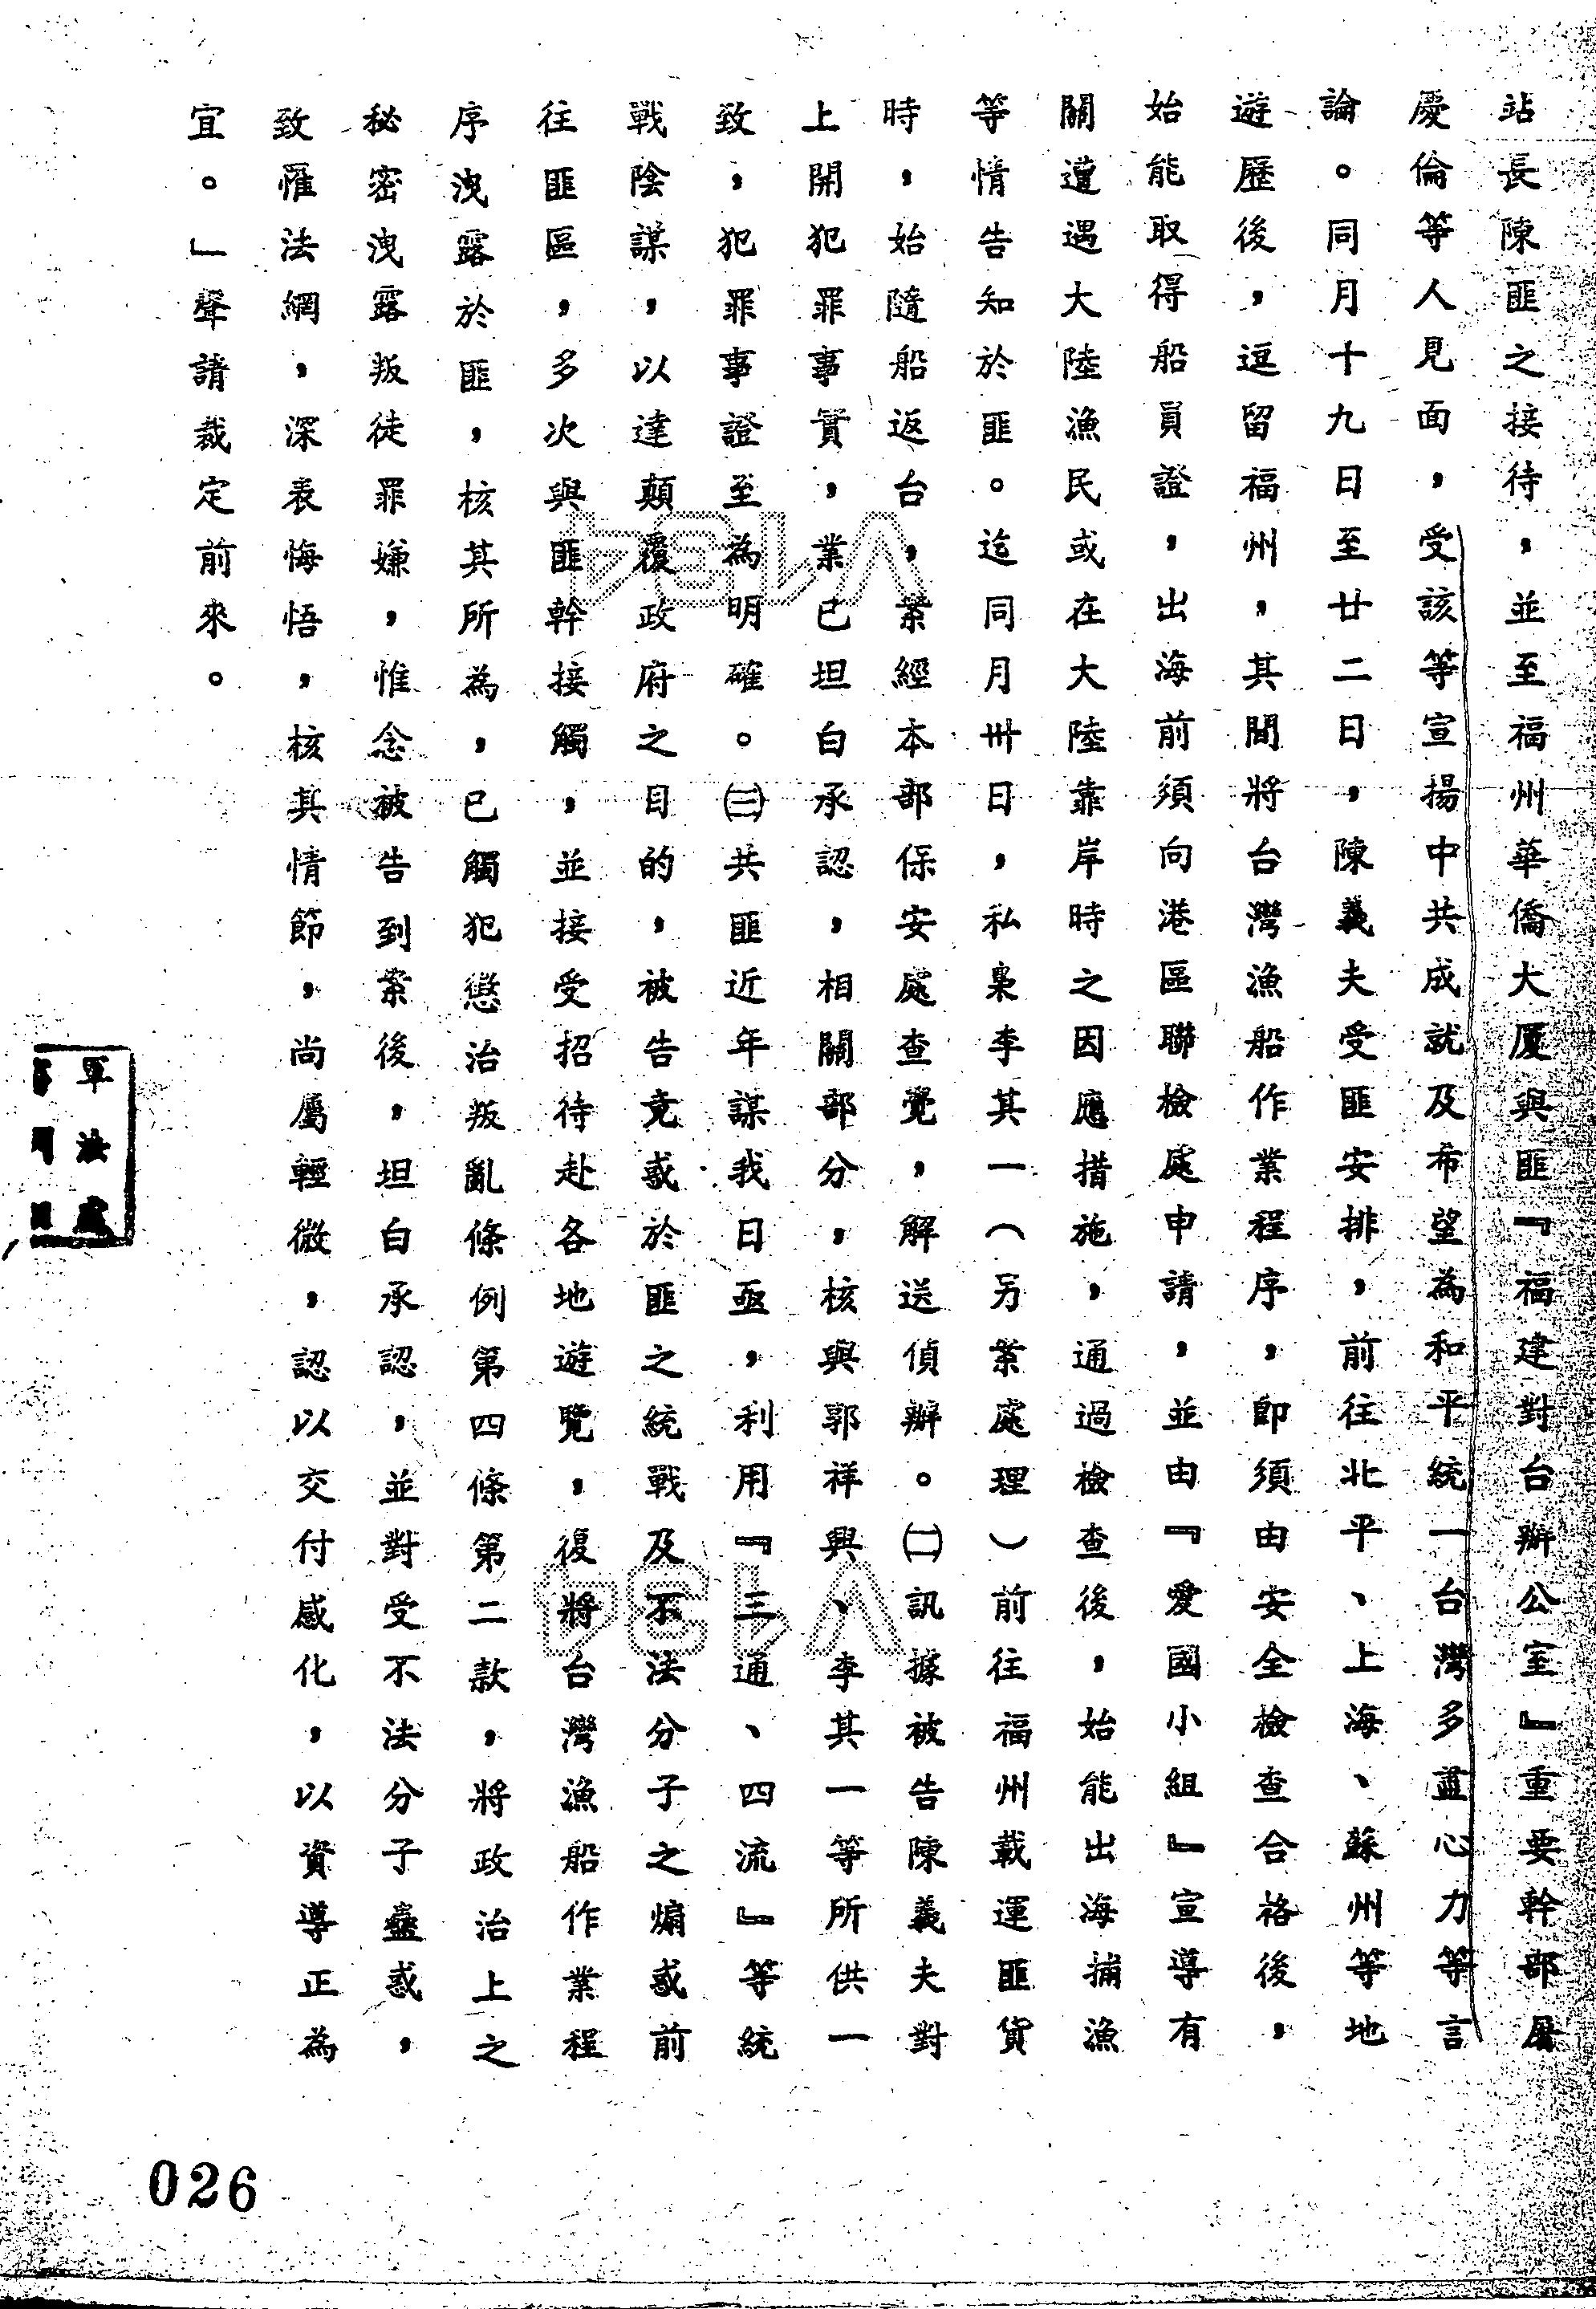 站長陳匪之接待，並至福州華僑大厦與匪『福建對台辦公室』重要幹部屠
慶倫等人見面，受該等宣揚中共成就及布望為和平統一台灣多盡心力等言
論。同月十九日至廿二日，陳義夫受匪安排，前往北平、上海、蘇州等地
遊歷後，逗留福州，其間將台灣漁船作業程序，即須由安全檢查合格後，
始能取得船員證，出海前須向港區聯檢處申請，並由『愛國小組』宣導有
關遭遇大陸漁民或在大陸靠岸時之因應措施，通過檢查後，始能出海捕漁
等情告知於匪。迄同月卅日，私梟李其一（另案處理）前往福州載運匪貨
時，始隨船返台，案經本部保安處查覺，解送偵辦。㈡訊據被告陳義夫對
上開犯罪事實，業已坦白承認，相關部分，核與郭祥興、李其一等所供一
致，犯罪事證至為明確。㈢共匪近年謀我日亟，利用『三通、四流』等統
戰陰謀，以達顛覆政府之目的，被告竟惑於匪之統戰及不法分子之煽惑前
往匪區，多次與匪幹接觸，並接受招待赴各地遊覽，復將台灣漁船作業程
序洩露於匪，核其所為，已觸犯懲治叛亂條例第四條第二款，將政治上之
秘密洩露叛徒罪嫌，惟念被告到案後，坦白承認，並對受不法分子蠱惑，
致罹法網，深表悔悟，核其情節，尚屬輕微，認以交付感化，以資導正為
宜。」聲請裁定前來。
軍法處
026